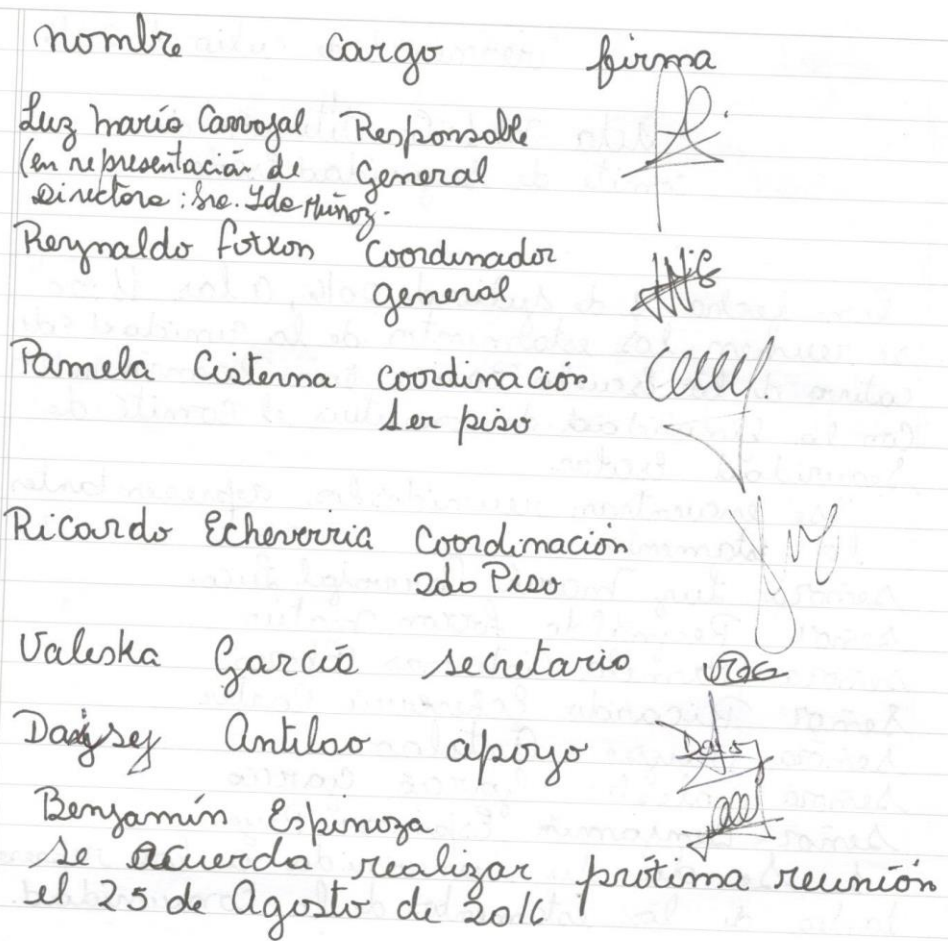 nombre cargo firma
Luz María Carvajal Responsable
(en representación de General
Directora: Sra. Ida Muñoz.
Reynaldo Coordinador
general
Pamela Cisterna coordinación
1er piso
Ricardo Echeverria Coordinación
2do Piso
Valeska García secretario
Daysey Antilao apoyo
Benjamín Espinoza
se acuerda realizar prótima reunión
el 25 de Agosto de 2016